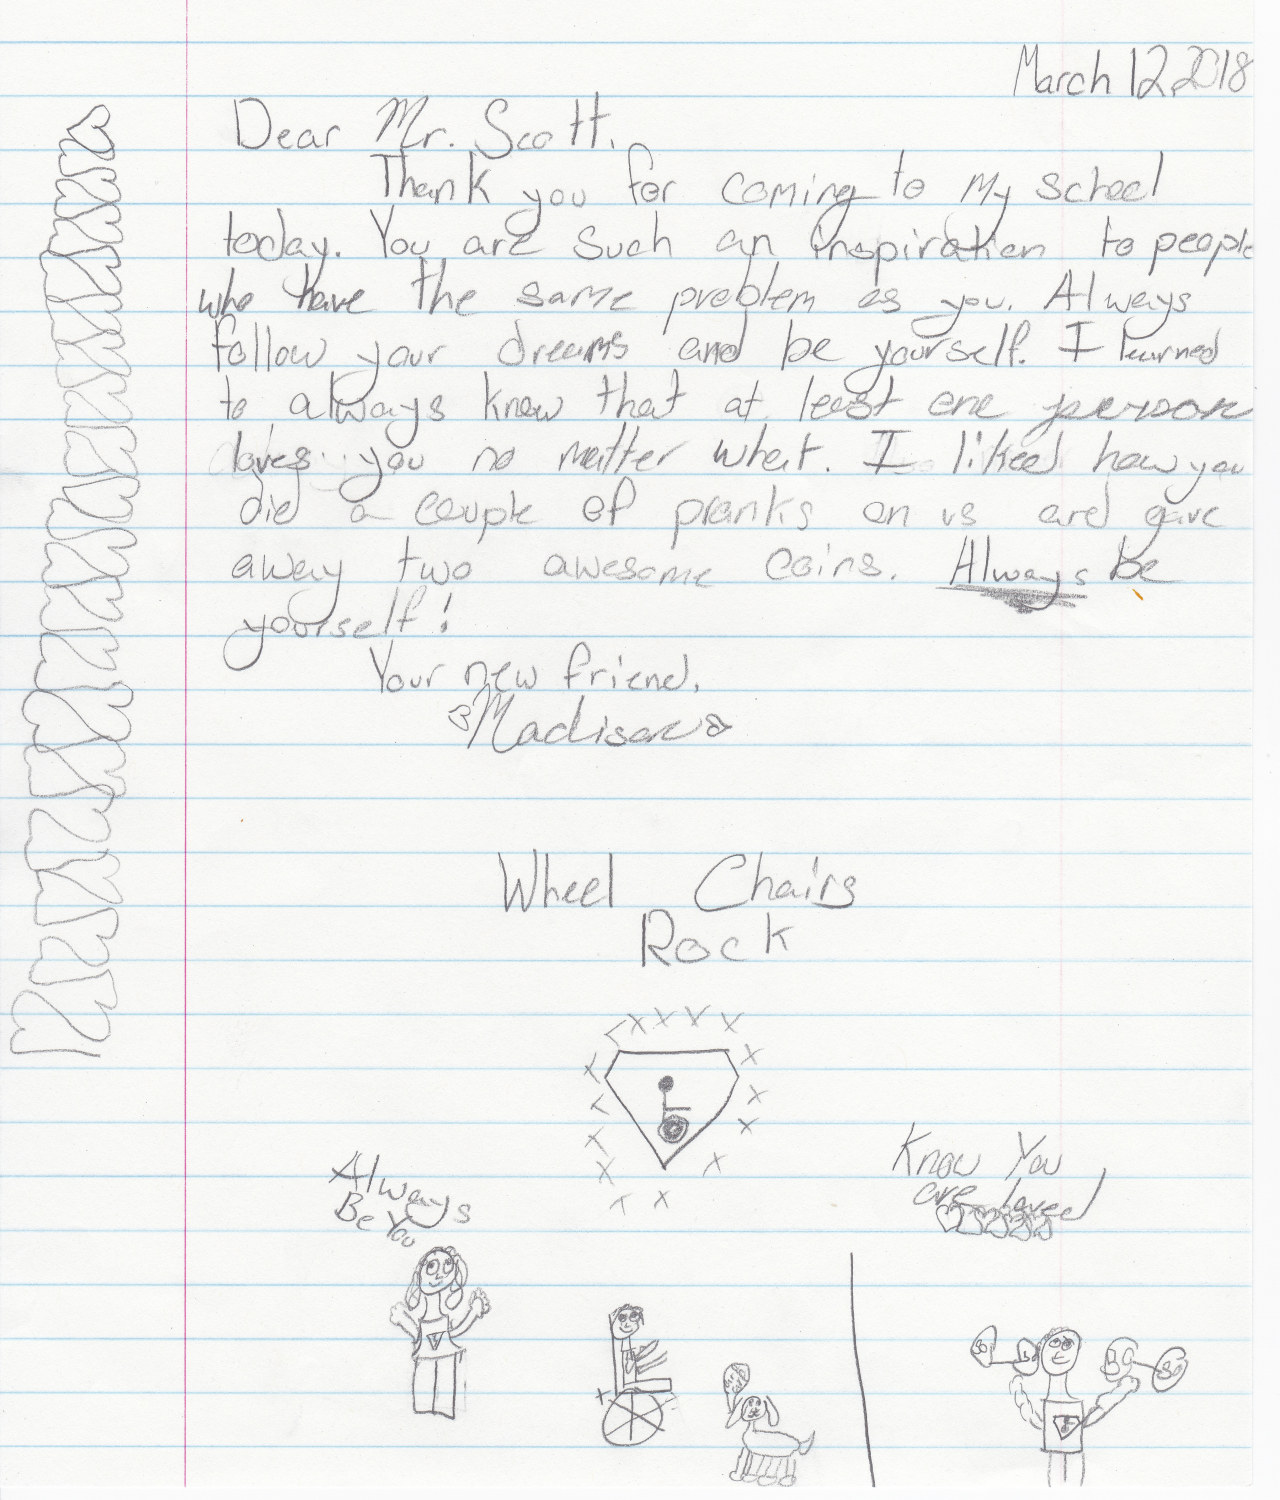 March 12, 2018
Dear Mr. Scott,
Thank you for coming to my school
today. You are such an inspiration to people
who have the same problem as you. Always
follow your dreams and be yourself. I learned
to always know that at least one person
loves you no matter what. I liked how you
did a couple of pranks on us and gave
away two awesome coins. Always be
yourself!
Your new friend,
Madison
Wheel Chairs
Rock
Always
Be You
Know You
are loved
80 80 80 80